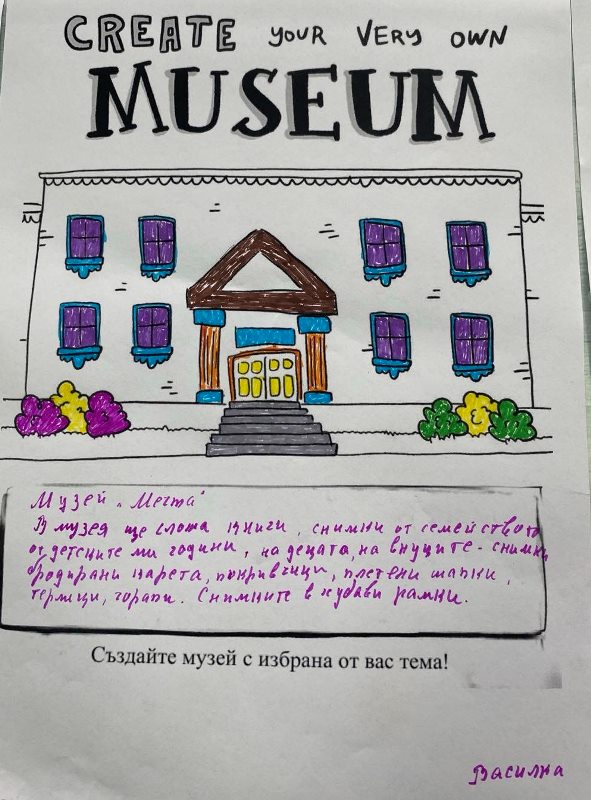 CREATE YOUR VERY OWN
MUSEUM
Музей „Мечта“
В музея ще сложа книги, снимки от семейството
от детските ми години, на децата, на внуците - снимки
бродирани карета, покривчици, плетени шапки,
терлици, чорапи. Снимките в хубави рамки.
Създайте музей с избрана от вас тема!
Василка